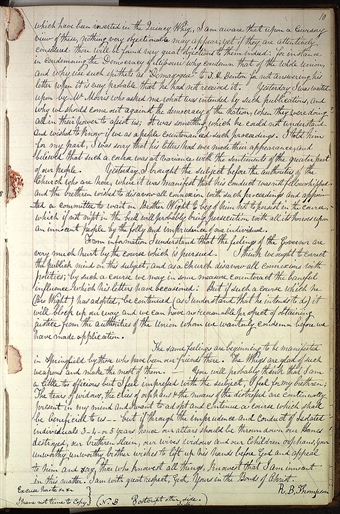 10
which have been inserted in the Quincy Whig, I am aware that upon a cursory
view of these, nothing very objectionable may appear; yet if they are attentively
considered there will be found very great objections to them indeed: for instance
in condemning the Democracy of Missouri why condemn that of the whole union
and why use such epithets as "Demagogue" to T. H. Benton for not answering his
letter when it is very probable that he had not received it. Yesterday I was waited
upon by Mr. Morris who asked me what was intended by such publications, and
why we should come out against the democracy of the nation, when they were doing
all in their power to assist us; It was something which he could not understand
and wished to know if we as a people countenanced such proceedings. I told him
for my part, I was sorry that his letters had ever made their appearance, and
believed that such a course was at variance with the sentiments of the greater part
of our people. Yesterday I brought the subject before the authorities of the
Church who are here, where it was manifest that his conduct was not fellowshiped
and the brethren wished to disavow all connexion with such proceedings and appoin-
ted a committee to wait on Brother Wight to beg of him not to persist in the course,
which if not nipt in the bud will probably bring persecution with all its horrors upon
an innocent people by the folly and imprudence of one individual.
From information I understand that the feelings of the Governor are
very much hurt by the course which is pursued. I think we ought to correct
the public mind on this subject, and as a church disavow all connexions with
politics; by such a course we may in some measure counteract the baneful
influence which his letters have occasioned. But if such a course which he
(Br Wight) has adopted, be continued, (as I understand that he intends to do) it
will block up our way and we can have no reasonable prospect of obtaining
justice from the authorities of the Union whom we wantonly condemn before we
have made application.
The same feelings are beginning to be manifested
in Springfield by those who have been our friends there. The Whigs are glad of such
weapons and make the most of them. You will probably think that I am
a little too officious but I feel impressed with the subject; I feel for my brethren;
The tears of widows, the cries of orphans & the moans of the distressed are continually
present in my mind and I want to adopt and continue a course which shall
be beneficial to us — but if through the imprudence and conduct of isolated
individuals 3 - 4 - or 5 years hence our altars should be thrown down our homes
destroyed, our brethren slain, our wives widows and our children orphans, your
unworthy brother wishes to lift up his hands before God and appeal
to him and say, thou who knowest all things, knowest that I am innocent
in this matter. I am with great respect, Gent, Yours in the Bonds of Christ.
R. B. Thompson
Excuse haste &c
I have not time to copy.
N. B Postscript other side.